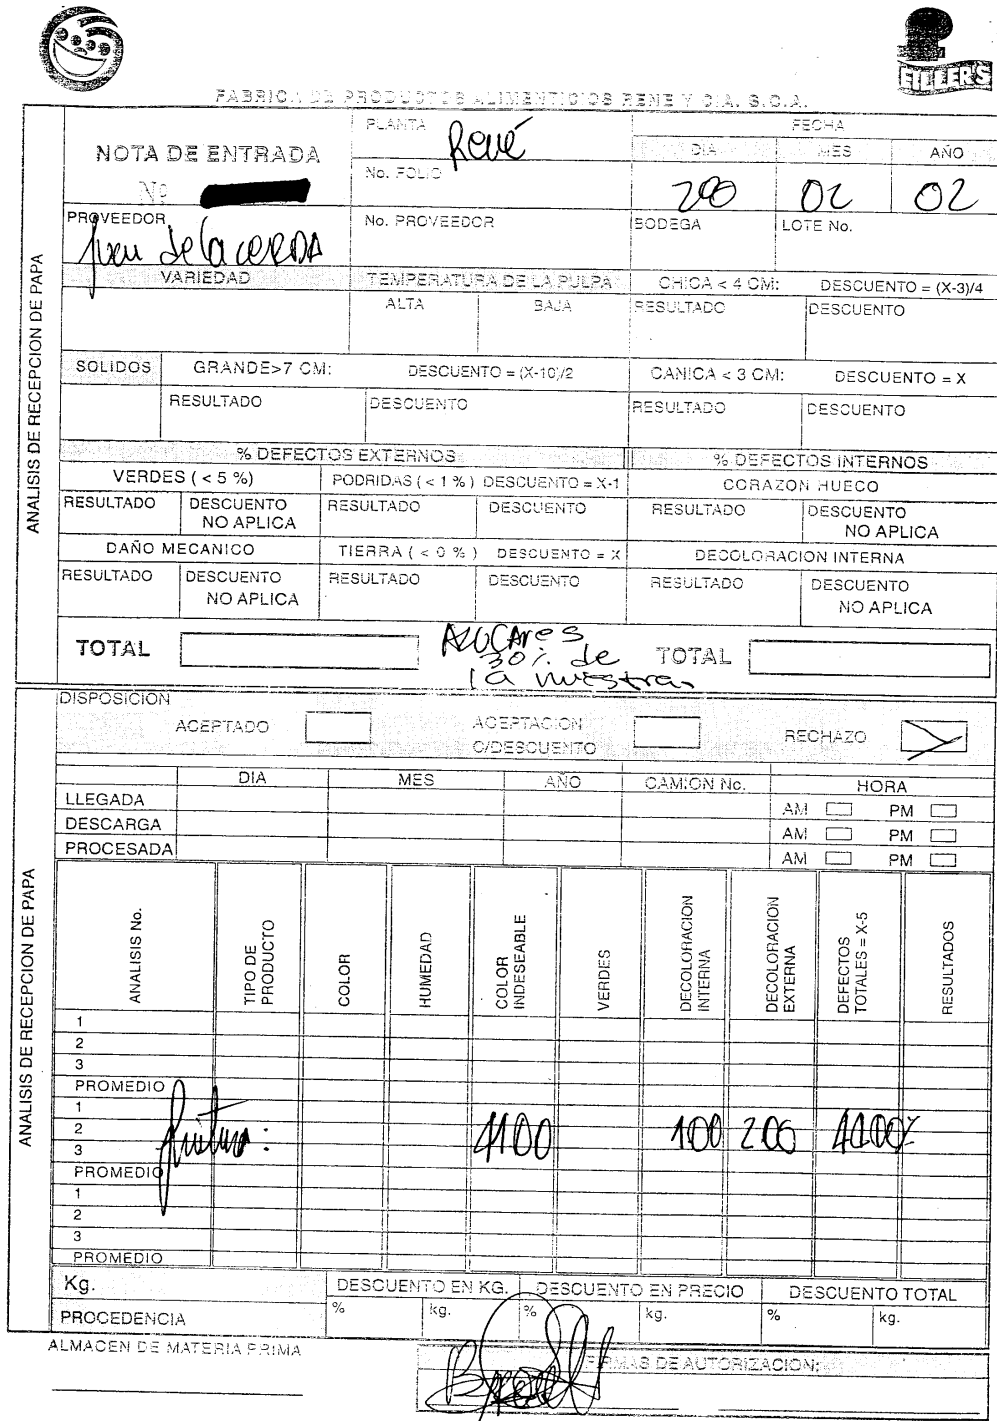 FILLER'S
FABRICA DE PRODUCTOS ALIMENTICIOS RENE Y CIA. S.C.A.
ANALISIS DE RECEPCION DE PAPA
NOTA DE ENTRADA
Nº
PLANTA René
No. FOLIO
FECHA
DIA MES AÑO
200 02 02
PROVEEDOR
Juan de la CERDA
No. PROVEEDOR
BODEGA
LOTE No.
VARIEDAD
TEMPERATURA DE LA PULPA
CHICA < 4 CM: DESCUENTO = (X-3)/4
ALTA BAJA RESULTADO DESCUENTO
SOLIDOS GRANDE>7 CM: DESCUENTO = (X-10)/2 CANICA < 3 CM: DESCUENTO = X
RESULTADO DESCUENTO RESULTADO DESCUENTO
% DEFECTOS EXTERNOS % DEFECTOS INTERNOS
VERDES ( < 5 %) PODRIDAS ( < 1 % ) DESCUENTO = X-1 CORAZON HUECO
RESULTADO DESCUENTO RESULTADO DESCUENTO RESULTADO DESCUENTO
NO APLICA NO APLICA
DAÑO MECANICO TIERRA ( < 0 % ) DESCUENTO = X DECOLORACION INTERNA
RESULTADO DESCUENTO RESULTADO DESCUENTO RESULTADO DESCUENTO
NO APLICA NO APLICA
TOTAL
AZUCAres
30% de
la muestra.
TOTAL
ANALISIS DE RECEPCION DE PAPA
DISPOSICION
ACEPTADO
ACEPTACION
C/DESCUENTO
RECHAZO
DIA MES AÑO CAMION No. HORA
LLEGADA AM PM
DESCARGA AM PM
PROCESADA AM PM
ANALISIS No.
TIPO DE
PRODUCTO
COLOR
HUMEDAD
COLOR
INDESEABLE
VERDES
DECOLORACION
INTERNA
DECOLORACION
EXTERNA
DEFECTOS
TOTALES = X-5
RESULTADOS
1
2
3
PROMEDIO
1
2
3
PROMEDIO
1
2
3
PROMEDIO
Kg. DESCUENTO EN KG. DESCUENTO EN PRECIO DESCUENTO TOTAL
PROCEDENCIA % kg. % kg. % kg.
ALMACEN DE MATERIA PRIMA
FIRMAS DE AUTORIZACION: